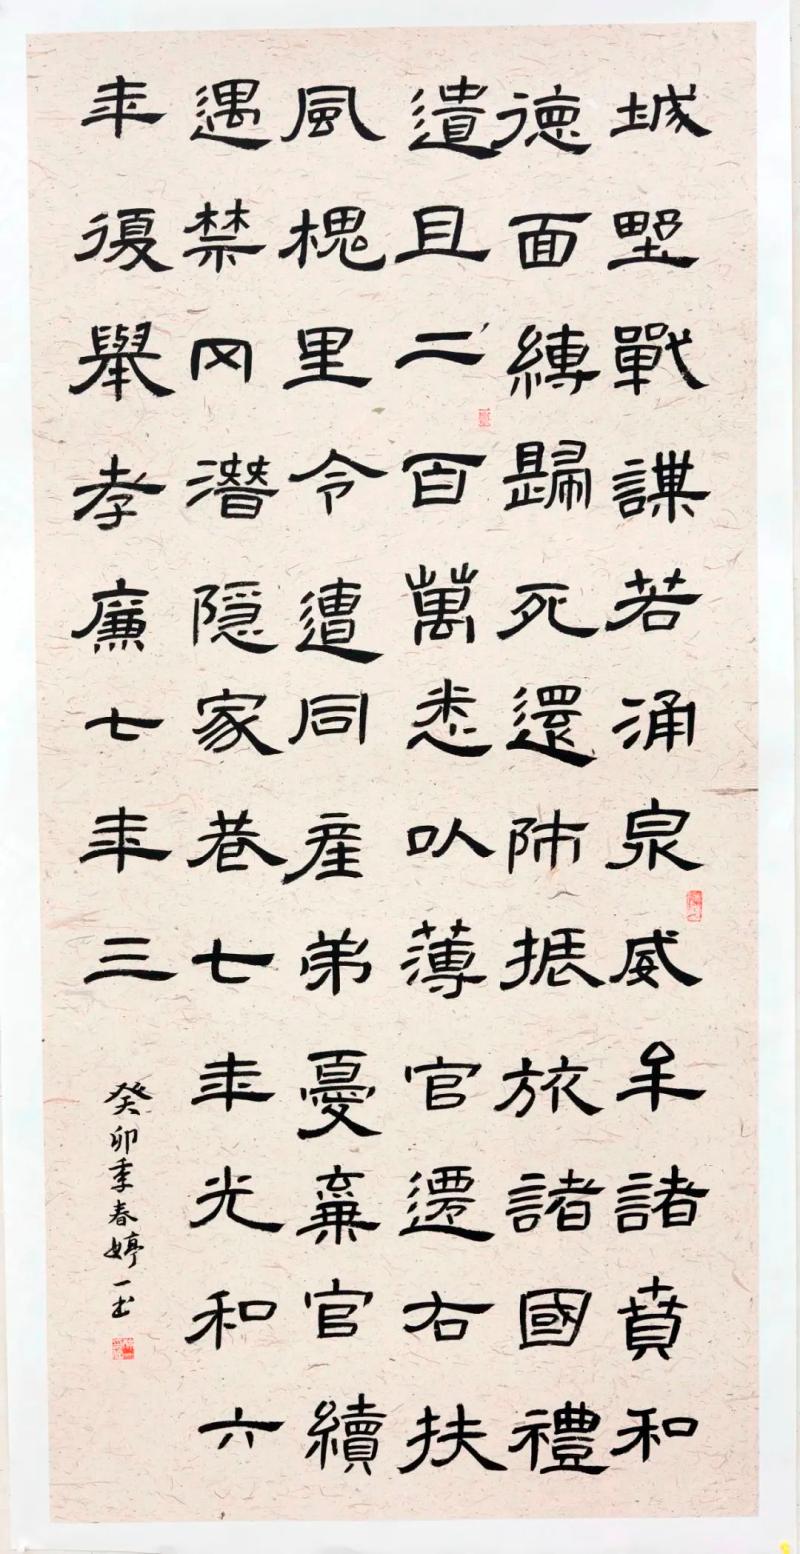 城野戰謀若涌泉威牟諸賁和
德面縛歸死還師振旅諸國禮
遺且二百萬悉以薄官遷右扶
風槐里令遭同產弟憂棄官續
遇禁冈潛隱家巷七年光和六
年復舉孝廉七年三
癸卯季春婷一书